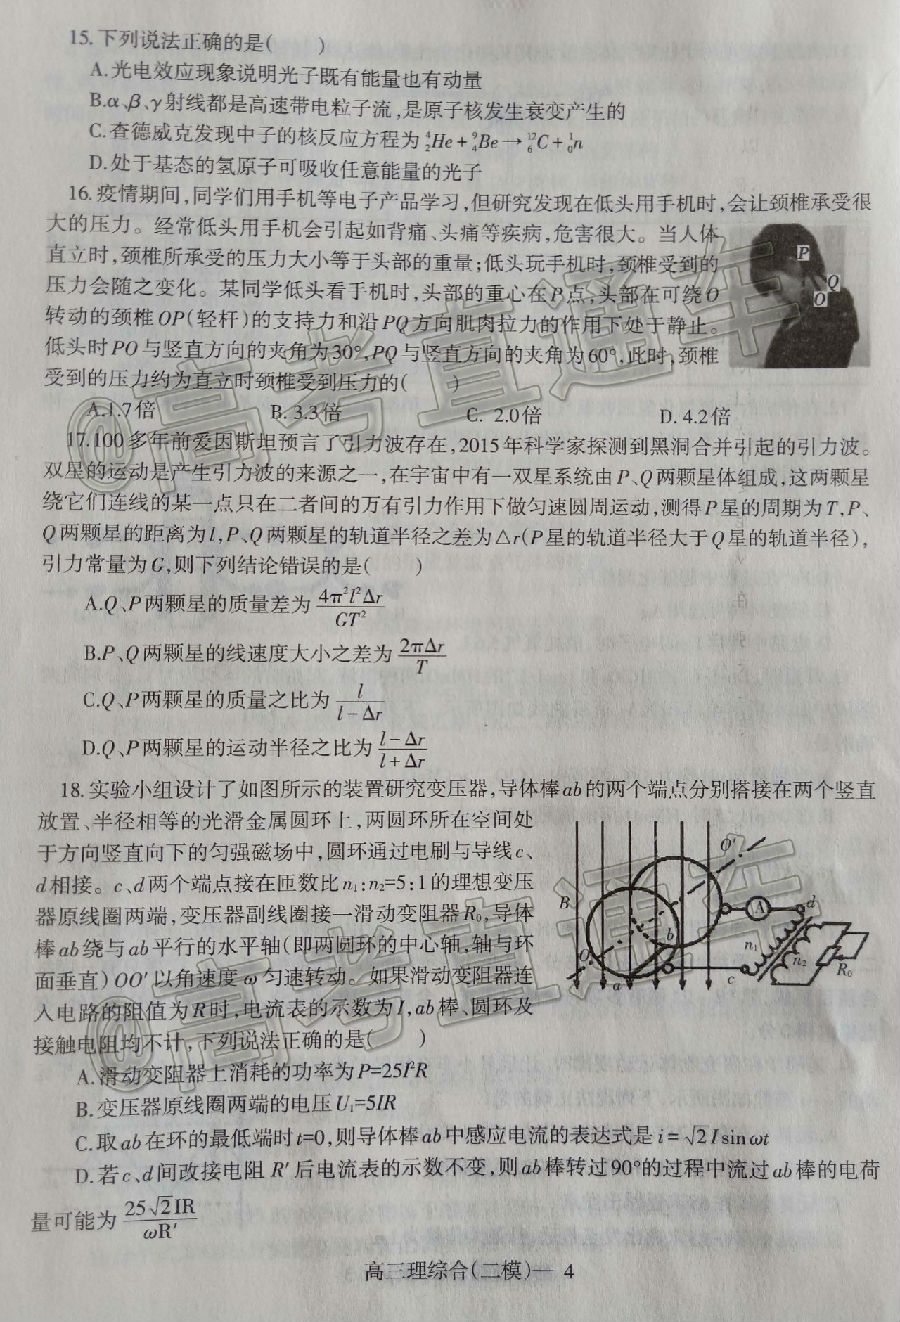 15.下列说法正确的是(　　)
A.光电效应现象说明光子既有能量也有动量
B.α、β、γ射线都是高速带电粒子流,是原子核发生衰变产生的
C.查德威克发现中子的核反应方程为 ⁴₂He+⁹₄Be→¹²₆C+¹₀n
D.处于基态的氢原子可吸收任意能量的光子
16.疫情期间,同学们用手机等电子产品学习,但研究发现在低头用手机时,会让颈椎承受很
大的压力。经常低头用手机会引起如背痛、头痛等疾病,危害很大。当人体
直立时,颈椎所承受的压力大小等于头部的重量;低头玩手机时,颈椎受到的
压力会随之变化。某同学低头看手机时,头部的重心在P点,头部在可绕O
转动的颈椎OP(轻杆)的支持力和沿PQ方向肌肉拉力的作用下处于静止。
低头时PO与竖直方向的夹角为30°,PQ与竖直方向的夹角为60°,此时,颈椎
受到的压力约为直立时颈椎受到压力的(　　)
P
Q
O
A.1.7倍　B. 3.3倍　C. 2.0倍　D. 4.2倍
17.100多年前爱因斯坦预言了引力波存在,2015年科学家探测到黑洞合并引起的引力波。
双星的运动是产生引力波的来源之一,在宇宙中有一双星系统由P、Q两颗星体组成,这两颗星
绕它们连线的某一点只在二者间的万有引力作用下做匀速圆周运动,测得P星的周期为T,P、
Q两颗星的距离为l,P、Q两颗星的轨道半径之差为△r(P星的轨道半径大于Q星的轨道半径),
引力常量为G,则下列结论错误的是(　　)
A.Q、P两颗星的质量差为 4π²l²Δr/GT²
B.P、Q两颗星的线速度大小之差为 2πΔr/T
C.Q、P两颗星的质量之比为 l/l-Δr
D.Q、P两颗星的运动半径之比为 l-Δr/l+Δr
18.实验小组设计了如图所示的装置研究变压器,导体棒ab的两个端点分别搭接在两个竖直
放置、半径相等的光滑金属圆环上,两圆环所在空间处
于方向竖直向下的匀强磁场中,圆环通过电刷与导线c、
d相接。c、d两个端点接在匝数比n₁:n₂=5:1的理想变压
器原线圈两端,变压器副线圈接一滑动变阻器R₀,导体
棒ab绕与ab平行的水平轴(即两圆环的中心轴,轴与环
面垂直)OO′以角速度ω匀速转动。如果滑动变阻器连
入电路的阻值为R时,电流表的示数为I,ab棒、圆环及
接触电阻均不计,下列说法正确的是(　　)
B
O
O′
a
b
A
d
c
n₁
n₂
R₀
A.滑动变阻器上消耗的功率为P=25I²R
B.变压器原线圈两端的电压U₁=5IR
C.取ab在环的最低端时t=0,则导体棒ab中感应电流的表达式是i=√2Isinωt
D.若c、d间改接电阻R′后电流表的示数不变,则ab棒转过90°的过程中流过ab棒的电荷
量可能为 25√2IR/ωR′
高三理综合(二模)— 4
@高考直通车
@高考直通车